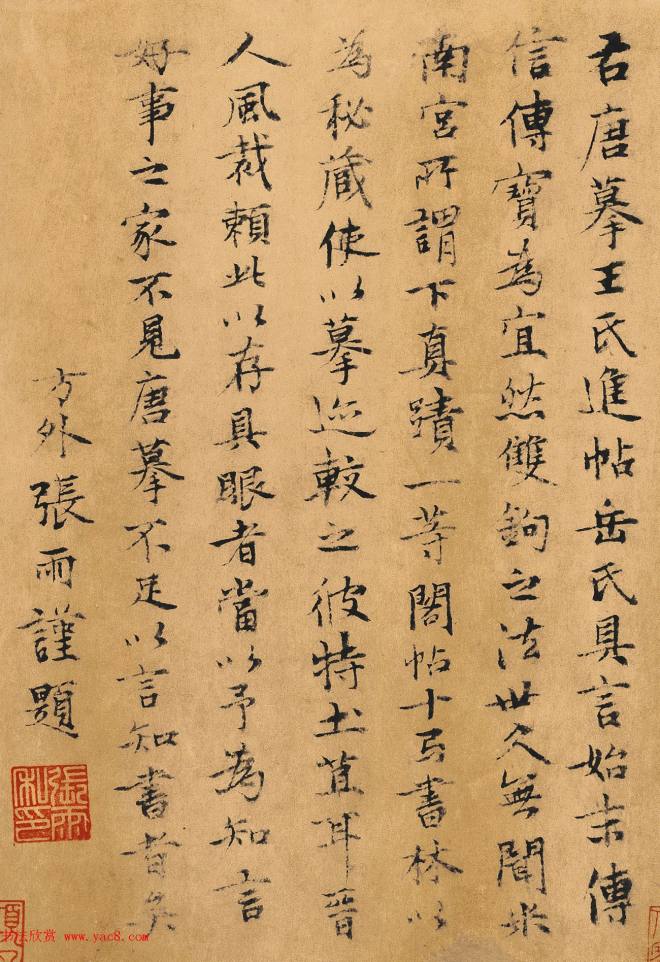 右唐摹王氏進帖岳氏具言始末傳
信傳寶為宜然雙鉤之法世久無聞米
南宮所謂下真蹟一等閣帖十弓書林以
為秘藏使以摹迹較之彼特土苴耳晉
人風裁賴此以存具眼者當以予為知言
好事之家不見唐摹不足以言知書者矣
方外張雨謹題
張雨私印
书法欣赏 www.yac8.com